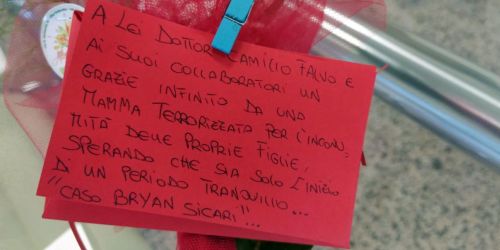 A LEI DOTTOR CAMILLO FALVO E
AI SUOI COLLABORATORI UN
GRAZIE INFINITO DA UNA
MAMMA TERRORIZZATA PER L'INCOLU
MITÀ DELLE PROPRIE FIGLIE,
SPERANDO CHE SIA SOLO L'INIZIO
DI UN PERIODO TRANQUILLO...
"CASO BRYAN SICARI"...